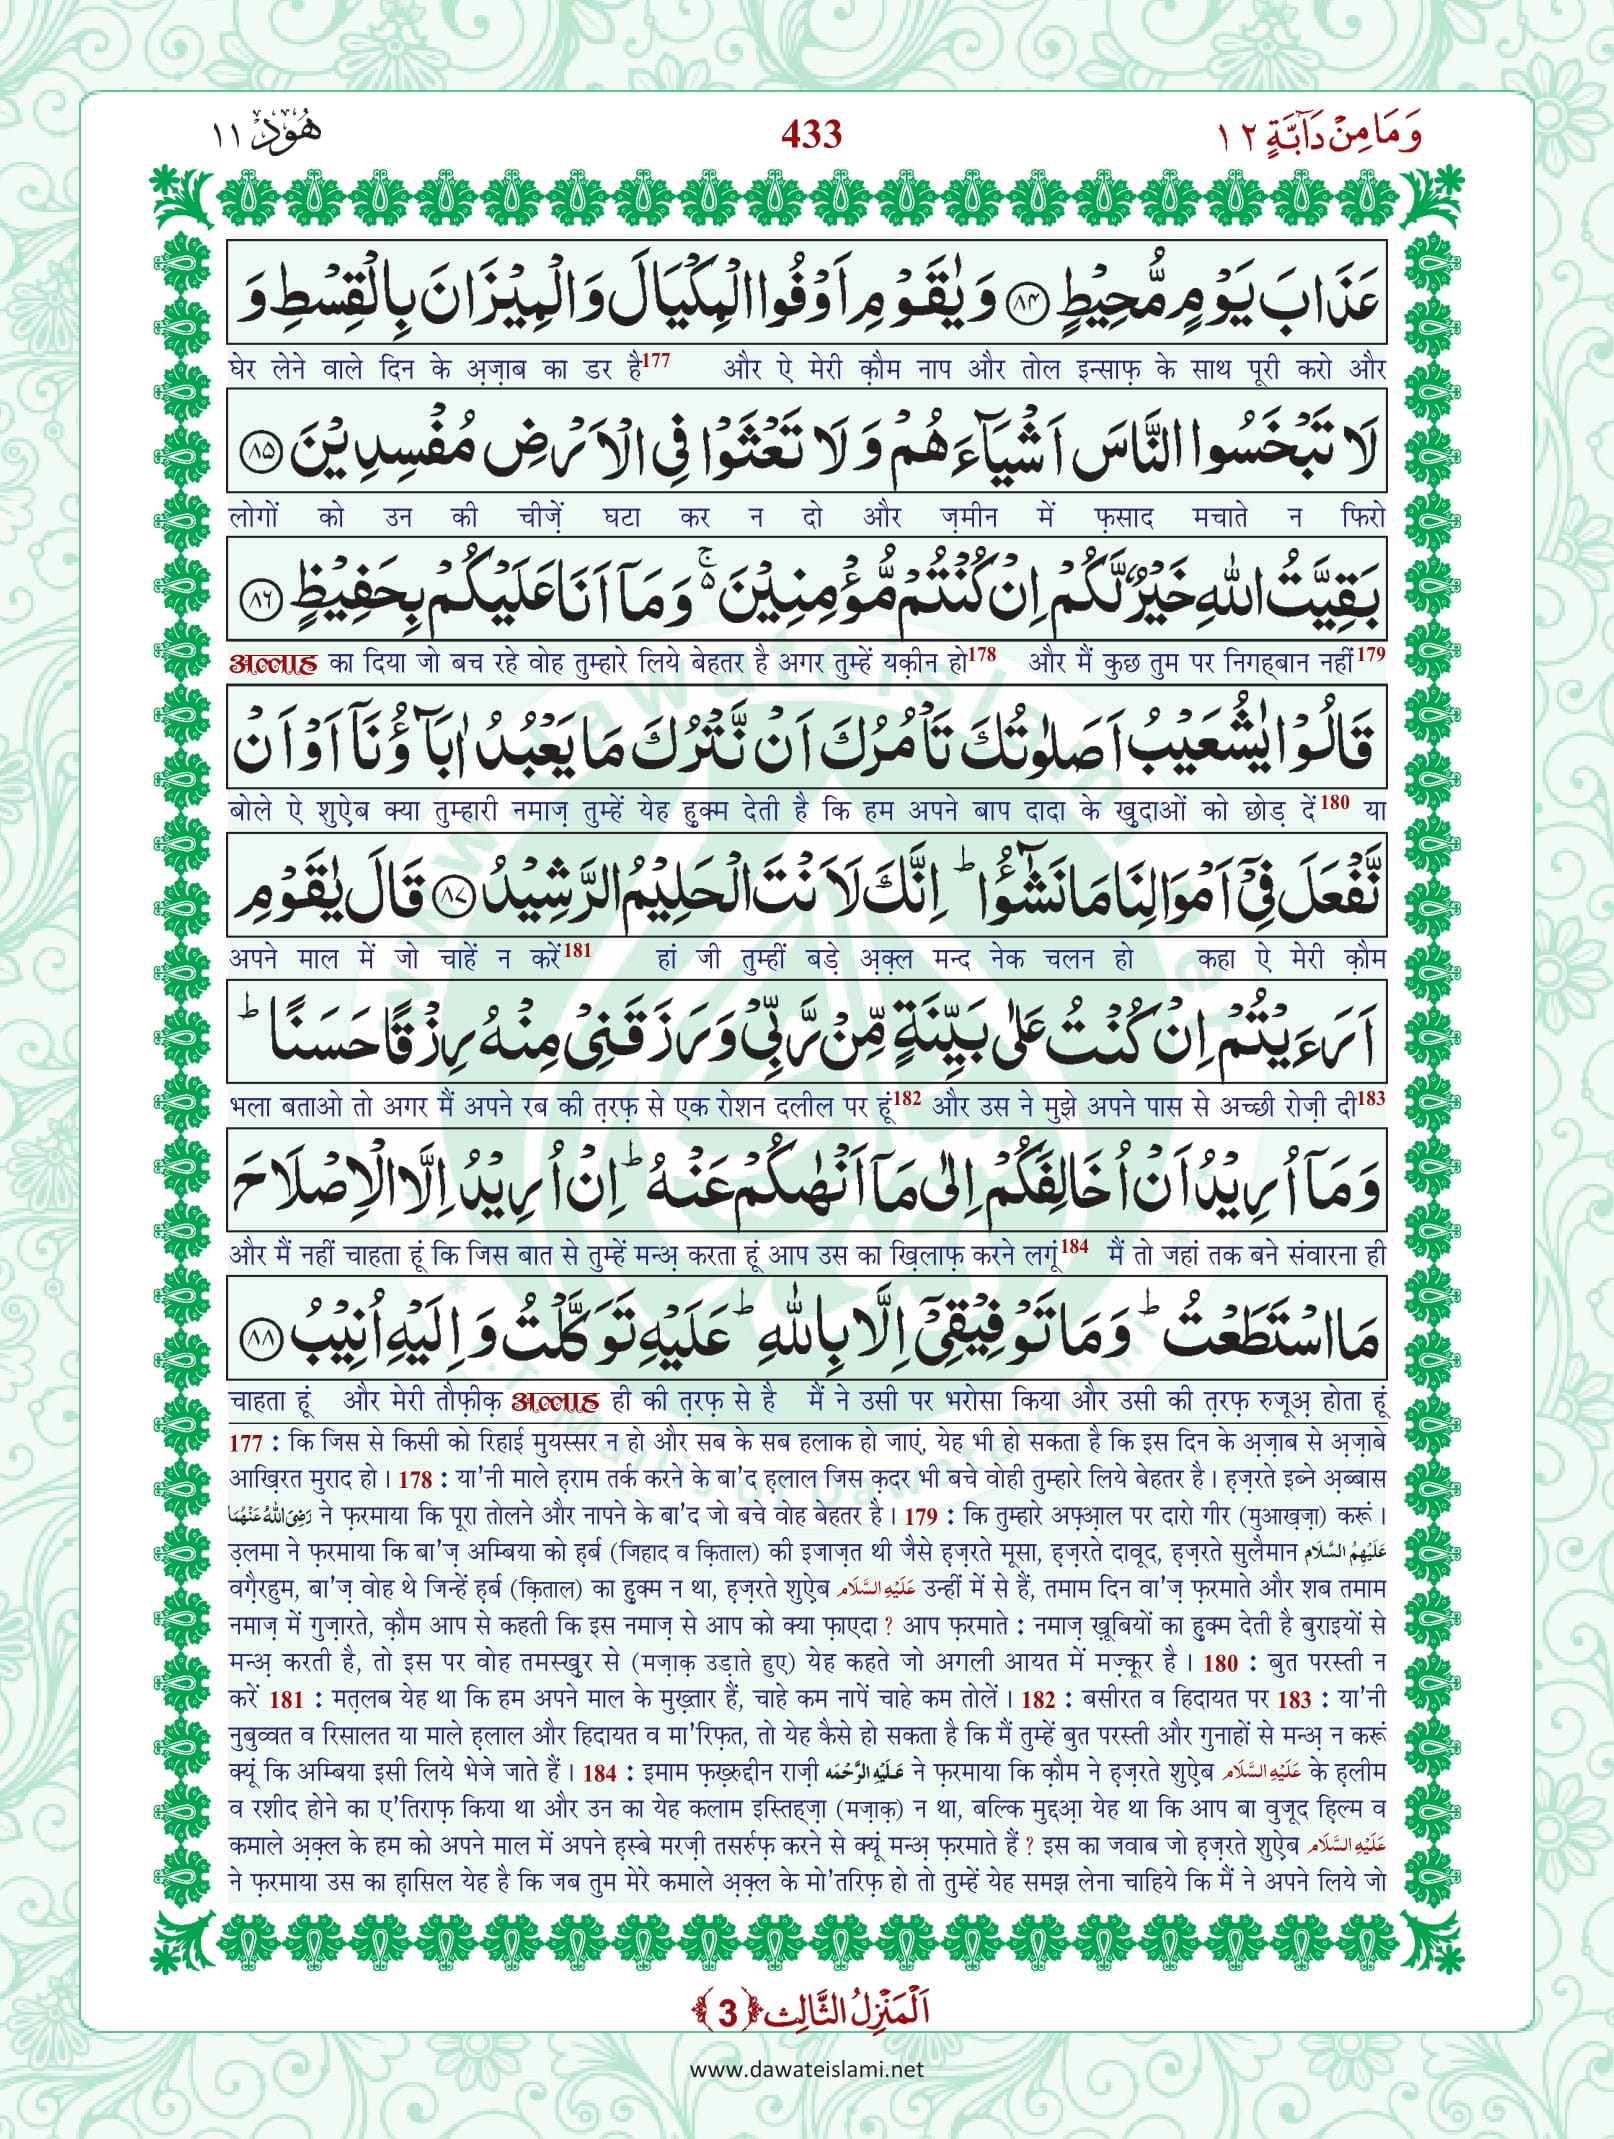 وَمَا مِنْ دَآبَّةٍ ١٢ 433 هُوْد ١١
عَذَابَ يَوْمٍ مُّحِيْطٍ ﴿۸۴﴾ وَ يٰقَوْمِ اَوْفُوا الْمِكْيَالَ وَ الْمِيْزَانَ بِالْقِسْطِ وَ
घेर लेने वाले दिन के अ़ज़ाब का डर है177 और ऐ मेरी क़ौम नाप और तोल इन्साफ़ के साथ पूरी करो और
لَا تَبْخَسُوا النَّاسَ اَشْيَآءَهُمْ وَ لَا تَعْثَوْا فِی الْاَرْضِ مُفْسِدِيْنَ ﴿۸۵﴾
लोगों को उन की चीज़ें घटा कर न दो और ज़मीन में फ़साद मचाते न फिरो
بَقِيَّتُ اللّٰهِ خَيْرٌ لَّكُمْ اِنْ كُنْتُمْ مُّؤْمِنِيْنَ ۚ۬ وَ مَاۤ اَنَا عَلَيْكُمْ بِحَفِيْظٍ ﴿۸۶﴾
अल्लाह का दिया जो बच रहे वोह तुम्हारे लिये बेहतर है अगर तुम्हें यक़ीन हो178 और मैं कुछ तुम पर निगहबान नहीं179
قَالُوْا يٰشُعَيْبُ اَصَلٰوتُكَ تَاْمُرُكَ اَنْ نَّتْرُكَ مَا يَعْبُدُ اٰبَآؤُنَاۤ اَوْ اَنْ
बोले ऐ शुऐब क्या तुम्हारी नमाज़ तुम्हें येह हुक्म देती है कि हम अपने बाप दादा के खुदाओं को छोड़ दें180 या
نَّفْعَلَ فِیْۤ اَمْوَالِنَا مَا نَشٰٓؤُا ؕ اِنَّكَ لَاَنْتَ الْحَلِيْمُ الرَّشِيْدُ ﴿۸۷﴾ قَالَ يٰقَوْمِ
अपने माल में जो चाहें न करें181 हां जी तुम्हीं बड़े अ़क़्ल मन्द नेक चलन हो कहा ऐ मेरी क़ौम
اَرَءَيْتُمْ اِنْ كُنْتُ عَلٰی بَيِّنَةٍ مِّنْ رَّبِّیْ وَ رَزَقَنِیْ مِنْهُ رِزْقًا حَسَنًا ؕ
भला बताओ तो अगर मैं अपने रब की त़रफ़ से एक रोशन दलील पर हूं182 और उस ने मुझे अपने पास से अच्छी रोज़ी दी183
وَ مَاۤ اُرِيْدُ اَنْ اُخَالِفَكُمْ اِلٰی مَاۤ اَنْهٰىكُمْ عَنْهُ ؕ اِنْ اُرِيْدُ اِلَّا الْاِصْلَاحَ
और मैं नहीं चाहता हूं कि जिस बात से तुम्हें मन्अ़ करता हूं आप उस का ख़िलाफ़ करने लगूं184 मैं तो जहां तक बने संवारना ही
مَا اسْتَطَعْتُ ؕ وَ مَا تَوْفِيْقِیْۤ اِلَّا بِاللّٰهِ ؕ عَلَيْهِ تَوَكَّلْتُ وَ اِلَيْهِ اُنِيْبُ ﴿۸۸﴾
चाहता हूं और मेरी तौफ़ीक़ अल्लाह ही की त़रफ़ से है मैं ने उसी पर भरोसा किया और उसी की त़रफ़ रुजूअ़ होता हूं
177 : कि जिस से किसी को रिहाई मुयस्सर न हो और सब के सब हलाक हो जाएं, येह भी हो सकता है कि इस दिन के अ़ज़ाब से अ़ज़ाबे
आख़िरत मुराद हो। 178 : या'नी माले ह़राम तर्क करने के बा'द ह़लाल जिस क़दर भी बचे वोही तुम्हारे लिये बेहतर है। ह़ज़रते इब्ने अ़ब्बास
رَضِیَ اللّٰهُ عَنْهُمَا ने फ़रमाया कि पूरा तोलने और नापने के बा'द जो बचे वोह बेहतर है। 179 : कि तुम्हारे अफ़्आ़ल पर दारो गीर (मुआख़ज़ा) करूं।
उ़लमा ने फ़रमाया कि बा'ज़ अम्बिया को ह़र्ब (जिहाद व क़िताल) की इजाज़त थी जैसे ह़ज़रते मूसा, ह़ज़रते दावूद, ह़ज़रते सुलैमान عَلَيْهِمُ السَّلَام
वग़ैरहुम, बा'ज़ वोह थे जिन्हें ह़र्ब (क़िताल) का हुक्म न था, ह़ज़रते शुऐ़ब عَلَيْهِ السَّلَام उन्हीं में से हैं, तमाम दिन वा'ज़ फ़रमाते और शब तमाम
नमाज़ में गुज़ारते, क़ौम आप से कहती कि इस नमाज़ से आप को क्या फ़ाएदा? आप फ़रमाते : नमाज़ ख़ूबियों का हुक्म देती है बुराइयों से
मन्अ़ करती है, तो इस पर वोह तमस्ख़ुर से (मज़ाक़ उड़ाते हुए) येह कहते जो अगली आयत में मज़्कूर है। 180 : बुत परस्ती न
करें 181 : मत़लब येह था कि हम अपने माल के मुख़्तार हैं, चाहे कम नापें चाहे कम तोलें। 182 : बसीरत व हिदायत पर 183 : या'नी
नुबुव्वत व रिसालत या माले ह़लाल और हिदायत व मा'रिफ़त, तो येह कैसे हो सकता है कि मैं तुम्हें बुत परस्ती और गुनाहों से मन्अ़ न करूं
क्यूं कि अम्बिया इसी लिये भेजे जाते हैं। 184 : इमाम फ़ख़्रुद्दीन राज़ी عَلَيْهِ الرَّحْمَه ने फ़रमाया कि क़ौम ने ह़ज़रते शुऐ़ब عَلَيْهِ السَّلَام के ह़लीम
व रशीद होने का ए'तिराफ़ किया था और उन का येह कलाम इस्तिह्ज़ा (मज़ाक़) न था, बल्कि मुद्दआ़ येह था कि आप बा वुजूद ह़िल्म व
कमाले अ़क़्ल के हम को अपने माल में अपने ह़स्बे मरज़ी तसर्रुफ़ करने से क्यूं मन्अ़ फ़रमाते हैं? इस का जवाब जो ह़ज़रते शुऐ़ब عَلَيْهِ السَّلَام
ने फ़रमाया उस का ह़ासिल येह है कि जब तुम मेरे कमाले अ़क़्ल के मो'तरिफ़ हो तो तुम्हें येह समझ लेना चाहिये कि मैं ने अपने लिये जो
اَلْمَنْزِلُ الثَّالِث ﴿3﴾
www.dawateislami.net